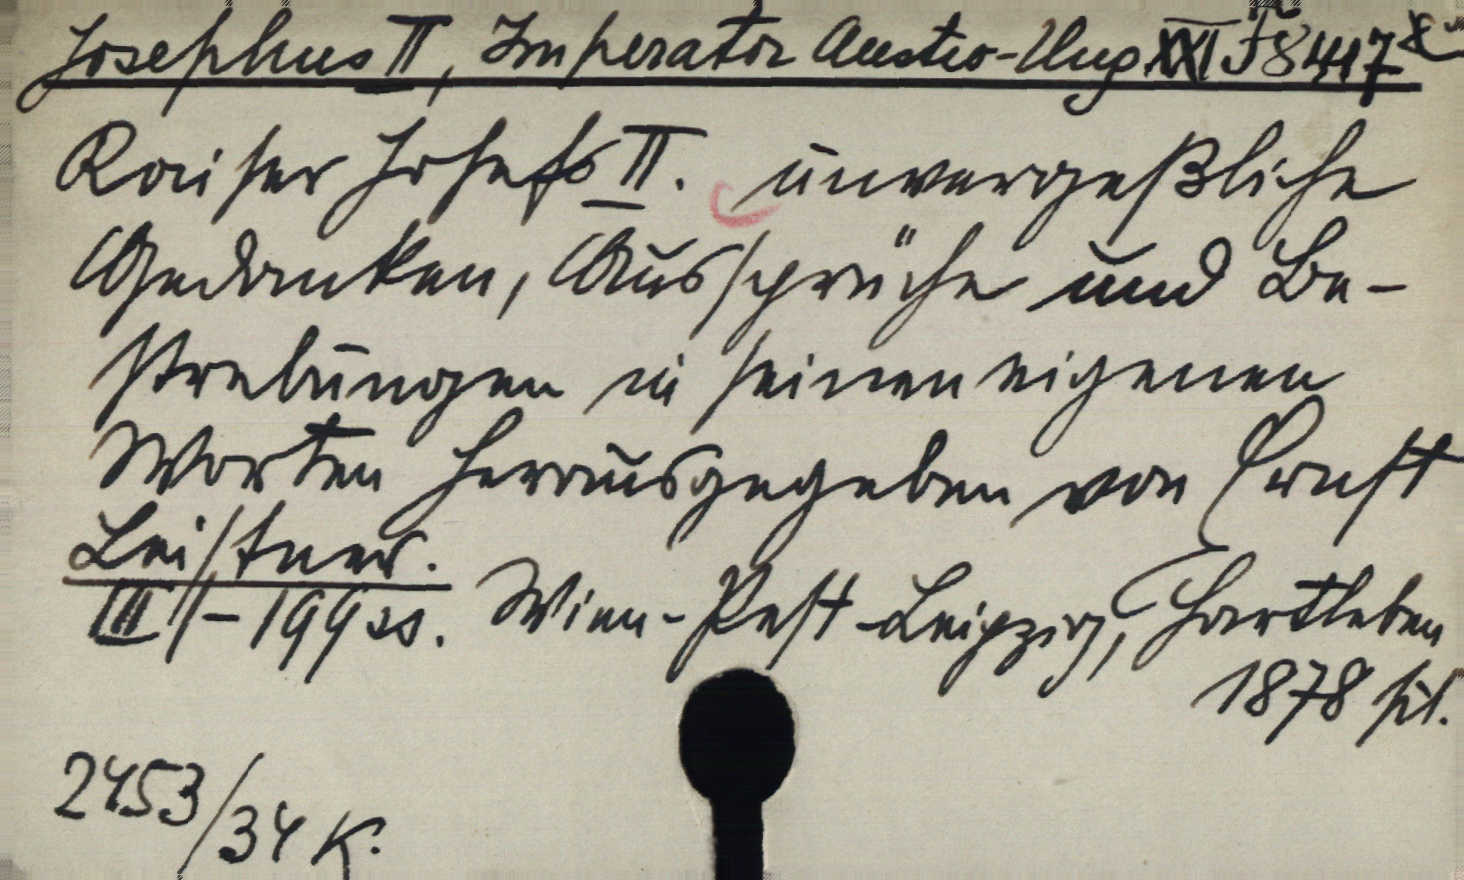 Josephus II, Imperator Austro-Ung. XXI F 8417
Kaiser Josefs II. unvergeßliche
Gedanken, Aussprüche und Be-
strebungen in seinen eigenen
Worten herausgegeben von Ernst
Leistner.
III 1-199 ss. Wien-Pest-Leipzig, Hartleben
1878
2453/34 K.